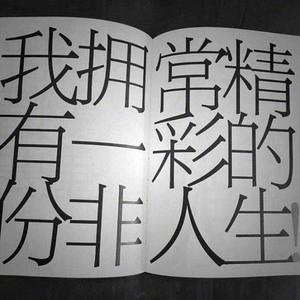 我拥
有一
份非
常精
彩的
人生!